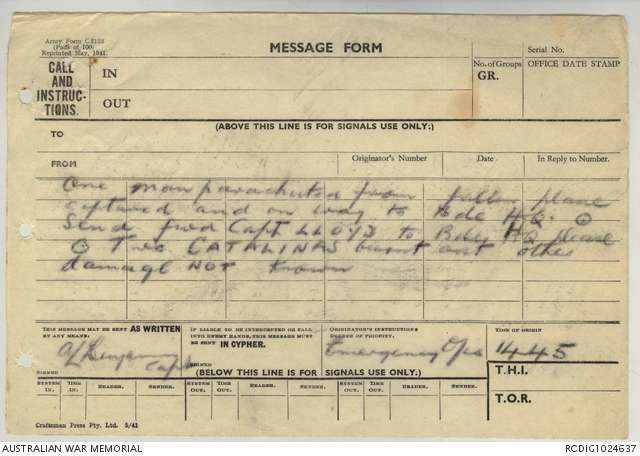 Army Form C.2128
(Pads of 100)
Reprinted May, 1941.
MESSAGE FORM
Serial No.
CALL
AND
INSTRUC-
TIONS.
IN
OUT
No. of Groups
GR.
OFFICE DATE STAMP
(ABOVE THIS LINE IS FOR SIGNALS USE ONLY:)
TO
FROM
Originator's Number
Date
In Reply to Number.
One man parachuted from fallen plane
captured and on way to Bde H.Q. O
Send fwd Capt LLOYD to Bde H Q please
O Two CATALINAS burnt out other
damage NOT known
THIS MESSAGE MAY BE SENT AS WRITTEN
BY ANY MEANS:
IF LIABLE TO BE INTERCEPTED OR FALL
INTO ENEMY HANDS, THIS MESSAGE MUST
BE SENT IN CYPHER.
ORIGINATOR'S INSTRUCTIONS
DEGREE OF PRIORITY.
TIME OF ORIGIN
Capt
Emergency Ops
1445
SIGNED
SIGNED
(BELOW THIS LINE IS FOR SIGNALS USE ONLY:)
T.H.I.
SYSTEM IN. TIME IN. READER. SENDER. SYSTEM OUT. TIME OUT. READER. SENDER. SYSTEM OUT. TIME OUT. READER. SENDER.
T.O.R.
Craftsman Press Pty. Ltd. 5/41
AUSTRALIAN WAR MEMORIAL
RCDIG1024637